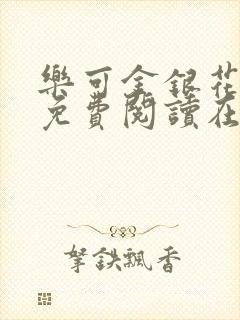 樂可金銀花
免費閱讀在
拏鉄飄香